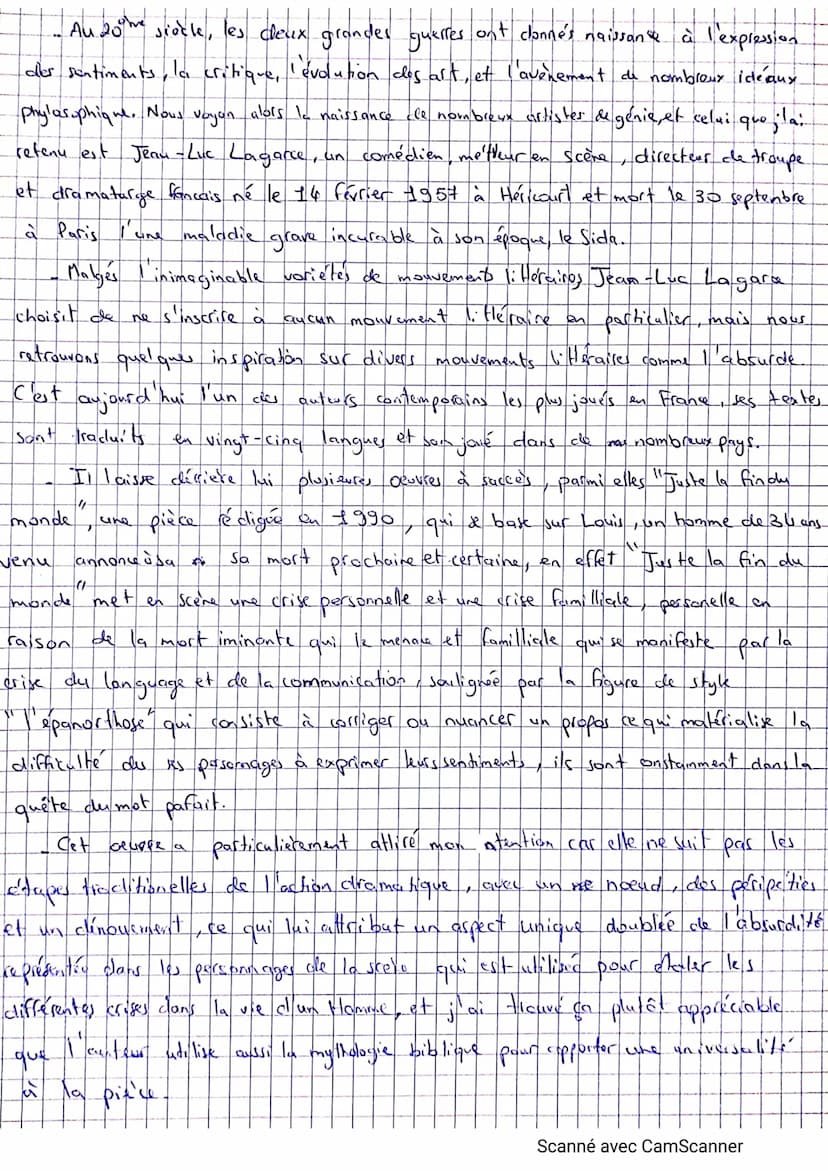 - Au 20ème siècle, les deux grandes guerres ont donnés naissance à l'expression
des sentiments, la critique, l'évolution des art, et l'avènement de nombreux idéaux
phylosophique. Nous voyon alors la naissance de nombreux artistes de génie, et celui que j'ai
retenu est Jean-Luc Lagarce, un comédien, metteur en scène, directeur de troupe
et dramaturge francais né le 14 février 1957 à Héricourt et mort le 30 septenbre
à Paris d'une maladie grave incurable à son époque, le Sida.
- Malgés l'inimaginable variétés de mouvement littéraires Jean-Luc Lagarce
choisit de ne s'inscrire à aucun mouvement littéraire en particulier, mais nous
retrouvons quelques inspiration sur divers mouvements littéraires comme l'absurde.
C'est aujourd'hui l'un des auteurs contemporains les plus joués en France, ses textes
sont traduits en vingt-cinq langues et son joué dans de nombreux pays.
- Il laisse dérrière lui plusieures oeuvres à succès, parmi elles "Juste la fin du
monde", une pièce rédigée en 1990, qui se base sur Louis, un homme de 34 ans
venu annoncé sa mort prochaine et certaine, en effet "Juste la fin du
monde" met en scène une crise personnelle et une crise familliale, personelle en
raison de la mort iminente qui le menace et familliale qui se manifeste par la
crise du language et de la communication, soulignée par la figure de style
"l'épanorthose" qui consiste à corriger ou nuancer un propos ce qui matérialise la
difficulté des personnages à exprimer leurs sentiments, ils sont constamment dans la
quête du mot parfait.
- Cet oeuvre a particulièrement attiré mon attention car elle ne suit pas les
étapes traditionelles de l'action dramatique, avec un noeud, des péripéties
et un dénouement, ce qui lui attribut un aspect unique doublée de l'absurdité
représentée dans les personnages de la qui est utilisé pour étaler les
différentes crises dans la vie d'un Homme, et j'ai trouvé ça plutôt appréciable
que l'auteur utilise aussi la mythologie biblique pour apporter une universalité
à la pièce.
Scanné avec CamScanner